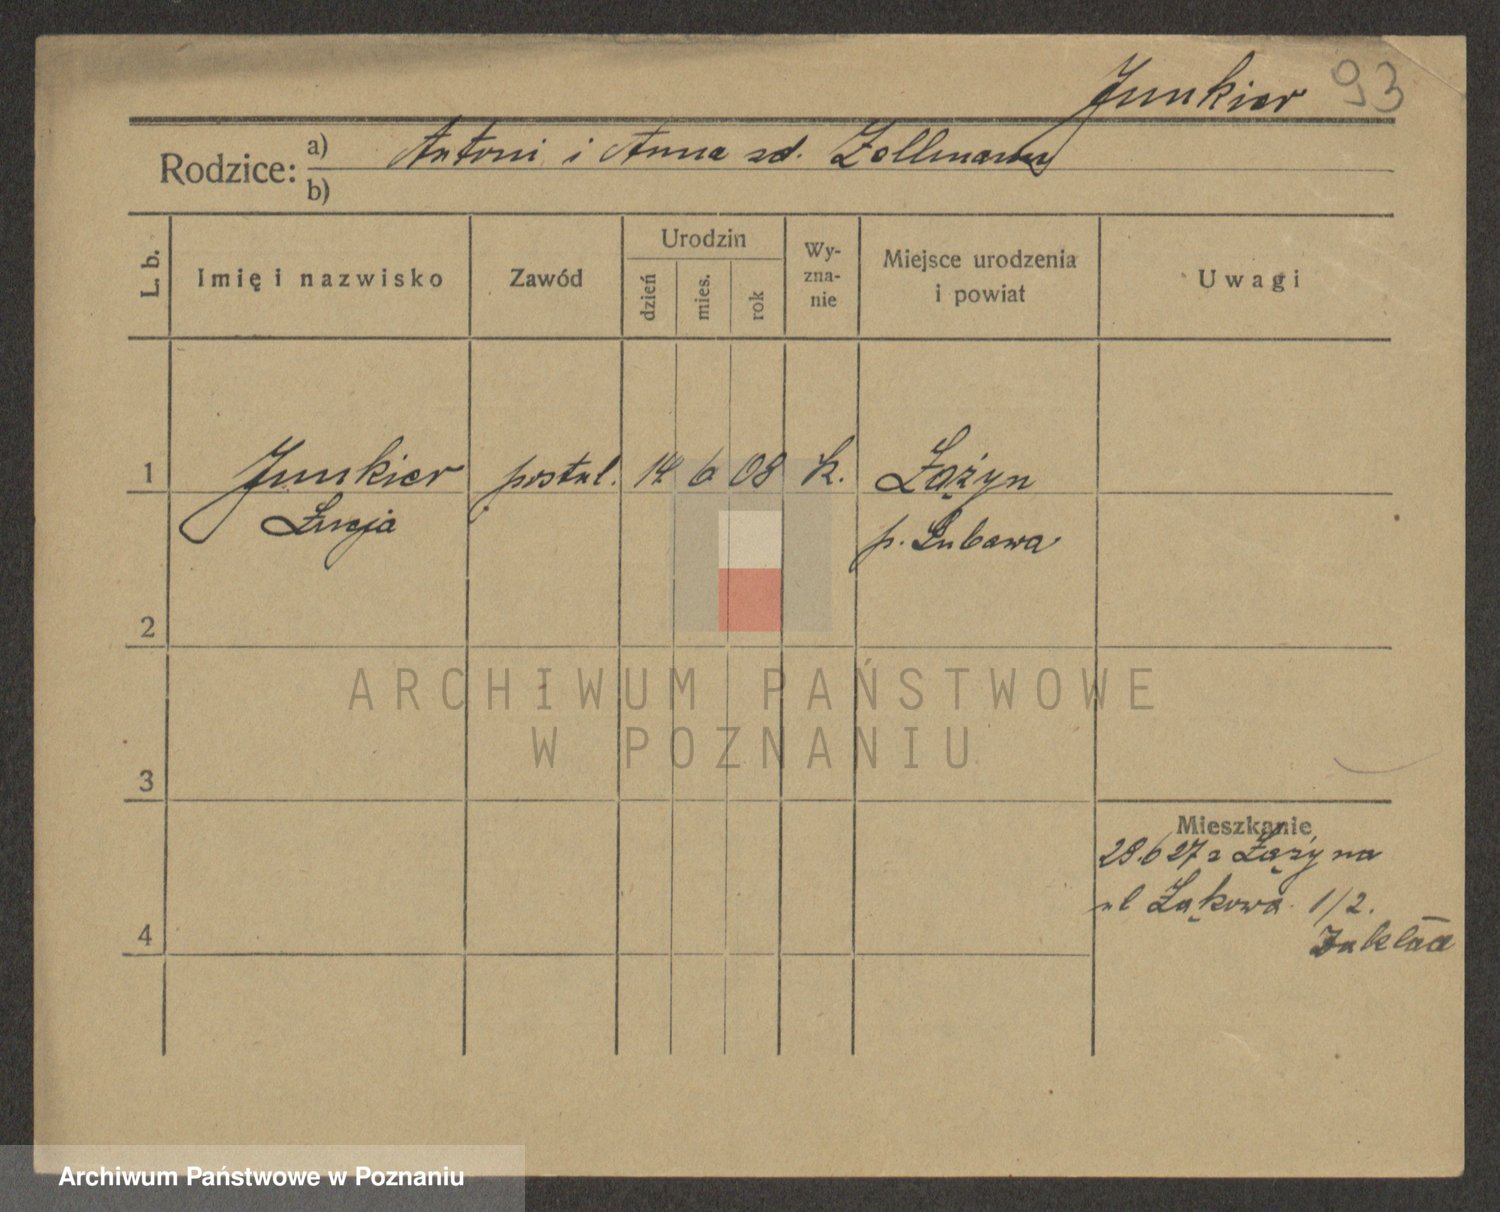 Junkier 93
Rodzice: a) Antoni i Anna zd. Zollmann
b)
L. b.
Imię i nazwisko
Zawód
Urodzin
dzień
mies.
rok
Wy-
zna-
nie
Miejsce urodzenia
i powiat
Uwagi
1 Junkier postul. 14 6 08 k. Łążyn
Łucja p. Lubawa
2
ARCHIWUM PAŃSTWOWE
W POZNANIU
3
Mieszkanie
28.6 27 z Łążyna
ul Łąkowa 1/2.
Zakład
4
Archiwum Państwowe w Poznaniu